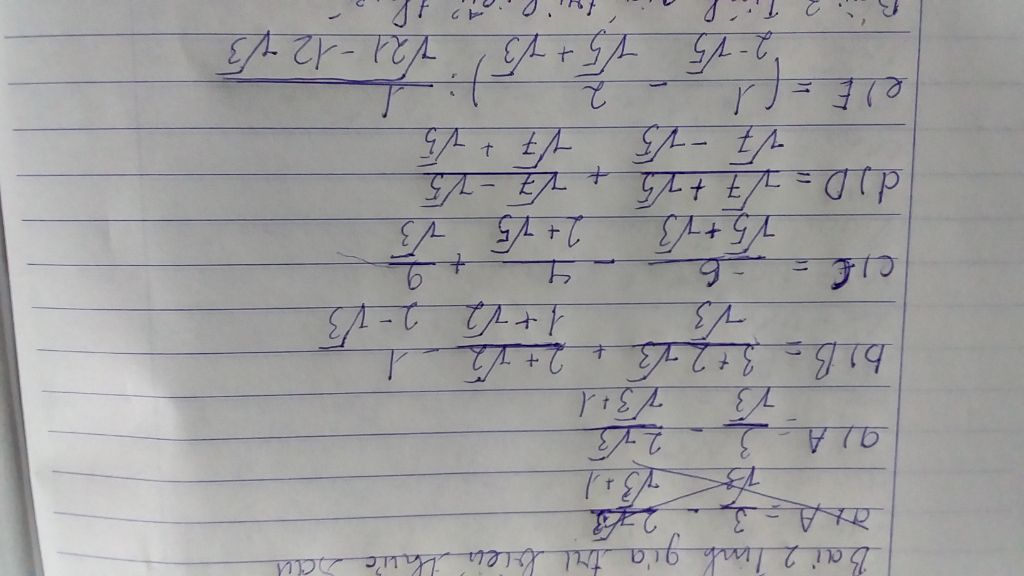 Bài 2 Tính gía trị biểu thức sau
a) A = 3/√3 - 2√3/(√3+1)
a) A = 3/√3 - 2√3/(√3+1)
b) B = (3+2√3)/√3 + (2+√2)/(1+√2) - 1/(2-√3)
c) C = -6/(√5+√3) - 4/(2+√5) + 9/√3
d) D = (√7+√5)/(√7-√5) + (√7-√5)/(√7+√5)
e) E = (1/(2-√5) - 2/(√5+√3)) : 1/√(21-12√3)